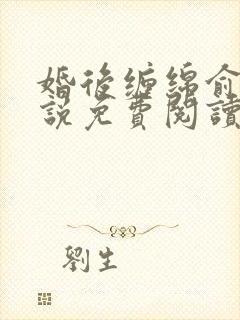 婚後纏綿俞
説免費閱讀
劉生